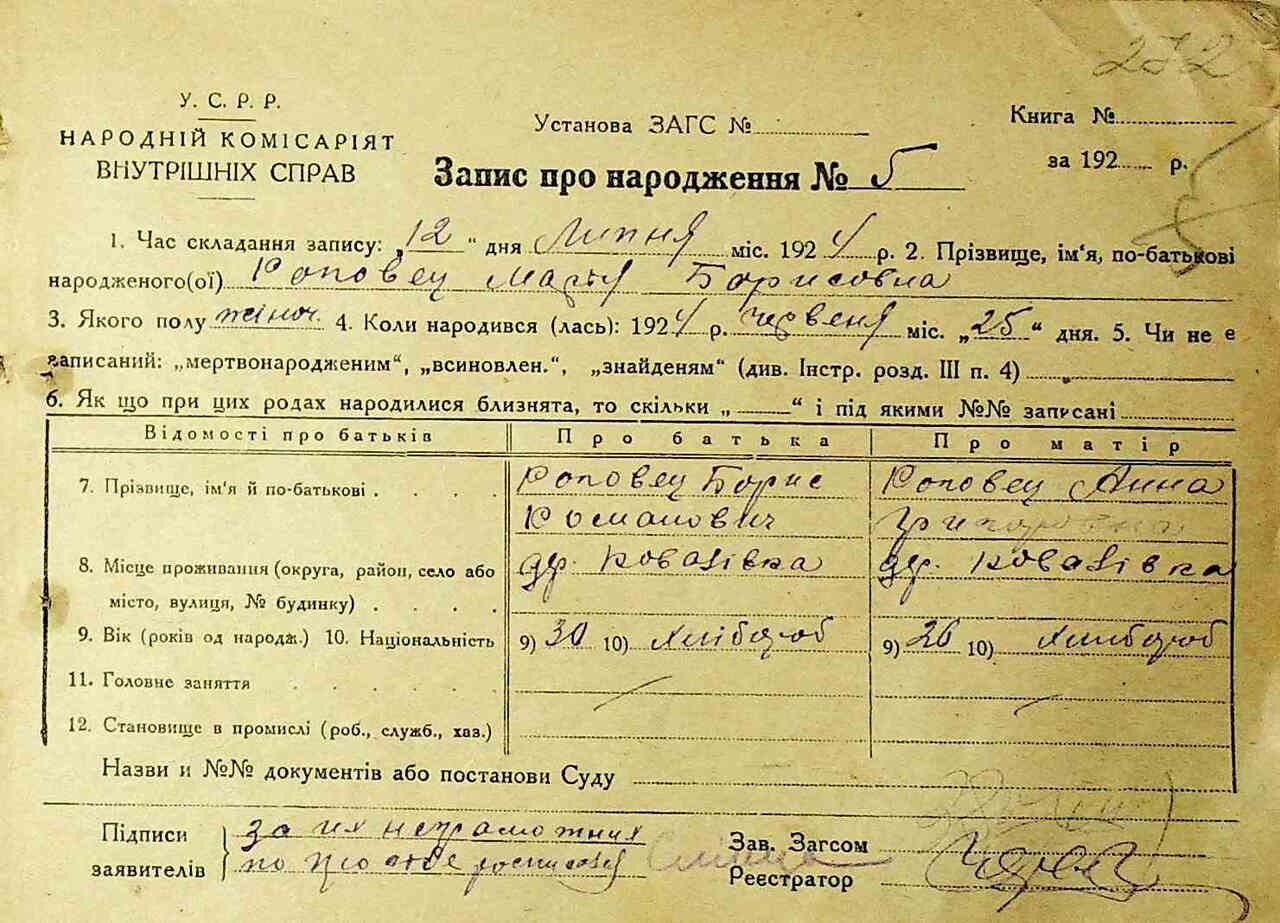 272
У. С. Р. Р.
НАРОДНІЙ КОМІСАРІЯТ
ВНУТРІШНІХ СПРАВ
Установа ЗАГС №
Книга №
за 192 р.
Запис про народження № 5
1. Час складання запису: „12" дня Липня міс. 1924 р. 2. Прізвище, ім'я, по-батькові
народженого(ої) Коповец Марія Борисовна
3. Якого полу жіноч. 4. Коли народився (лась): 1924 р. червеня міс. „25" дня. 5. Чи не є
записаний: „мертвонародженим", „всиновлен.", „знайденям" (див. Інстр. розд. III п. 4)
6. Як що при цих родах народилися близнята, то скільки „ " і під якими №№ записані
Відомості про батьків Про батька Про матір
7. Прізвище, ім'я й по-батькові Коповец Борис Коповец Анна
8. Місце проживання (округа, район, село або др. Ковалівка др. Ковалівка
місто, вулиця, № будинку)
9. Вік (років од народж.) 10. Національність 9) 30 10) Хлібороб 9) 26 10) Хлибороб
11. Головне заняття
12. Становище в промислі (роб., служб., хаз.)
Назви и №№ документів або постанови Суду
Підписи за их неграмотних
заявителів
Зав. Загсом
Реєстратор